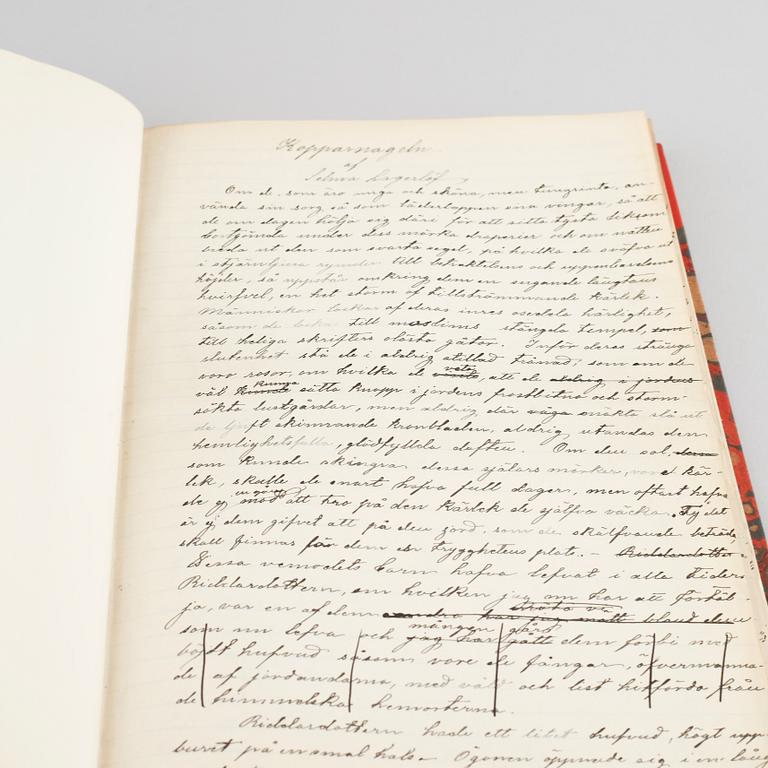 Kopparnageln
af
Selma Lagerlöf
Om de, som äro unga och sköna, men tungsinta, an-
vända sin sorg så som läderlappen sina vingar, så att
de om dagen hölja sig däri för att sitta tysta liksom
bortgömda under dess mörka draperier och om natten
breda ut den som svarta segel, på hvilka de sväfva ut
i stjärnljusa rymden till betraktelsens och uppenbarelsens
höjder, så uppstår omkring dem en sugande längtans
hvirfvel, en het storm af tillströmmande kärlek.
Människor lockas af deras inres osedda härlighet,
såsom de lockas till moslims stängda tempel, som
till heliga skrifters olästa gåtor. Inför deras stränga
slutenhet stå de i aldrig stillad trånad, som om de
voro rosor, om hvilka de veta, att de aldrig i jordens
väl kunna sätta knopp i jordens frostbitna och storm-
sökta lustgårdar, men aldrig där våga snäckta slå ut
de ljuft skimrande kronbladen, aldrig utandas den
hemlighetsfulla, glödfyllda doften. Om den sol,
som kunde skingra dessa själars mörker, vore kär-
lek, skulle de snart hafva full dager, men oftast hafva
de ej en gång mod att tro på den kärlek de själfva väcka. Ty det
är ej dem gifvet att på den jord, som de skälfvande beträda,
skall finnas för dem en trygghetens plats. – Riddardottern
Dessa vemodets barn hafva lefvat i alla tider.
Riddardottern, om hvilken jag nu har att förtäl-
ja, var en af dem
som nu lefva och mången gång jag har gått dem förbi med
böjdt hufvud såsom vore de fångar, öfvermanna-
de af jordandarna, med våld och list hitförda från
de himmelska hemorterna.
Riddardottern hade ett litet hufvud, högt upp-
buret på en smal hals. Ögonen öppnade sig i en lång